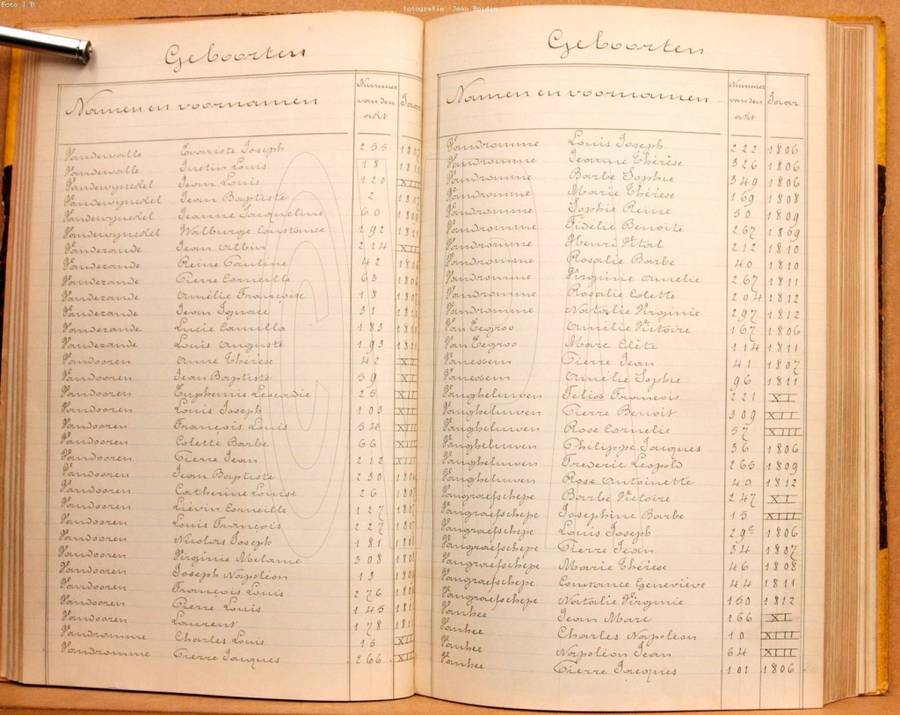 Foto J B
fotografie Jean Boidin
Geboorten
Namen en voornamen
Nummer van den akt
Jaar
Vandewalle Evariste Joseph 255
Vandewalle Justin Louis 18
Vandewynckel Jean Louis 120 XII
Vandewynckel Jean Baptiste 2
Vandewynckel Jeanne Jacqueline 60
Vandewynckel Walburge Constance 292
Vanderande Jean Albin 224 XII
Vanderande Reine Pauline 42
Vanderande Pierre Corneille 63
Vanderande Amélie Françoise 18
Vanderande Jean Ignace 31
Vanderande Lucie Camilla 183
Vanderande Louis Auguste 193
Vandooren Anne Thérèse 42
Vandooren Jean Baptiste 59
Vandooren Euphemie Leocadie 25
Vandooren Louis Joseph 103
Vandooren François Louis
Vandooren Colette Barbe 66
Vandooren Pierre Jean 212
Vandooren Jean Baptiste 230
Vandooren Catherine Louise 26
Vandooren Liévin Corneille 127
Vandooren Louis François 227
Vandooren Nicolas Joseph 181
Vandooren Virginie Melanie 308
Vandooren Joseph Napoléon 13
Vandooren François Louis 276
Vandooren Pierre Louis 145
Vandooren Laurent 178
Vandromme Charles Louis 15
Vandromme Pierre Jacques 266
Geboorten
Namen en voornamen
Nummer van den akt
Jaar
Vandromme Louis Joseph 222 1806
Vandromme Jeanne Thérèse 326 1806
Vandromme Barbe Sophie 349 1806
Vandromme Marie Thérèse 169 1808
Vandromme Sophie Reine 30 1809
Vandromme Fidélie Benoite 267 1809
Vandromme Henri Vital 212 1810
Vandromme Rosalie Barbe 40 1810
Vandromme Virginie Amelie 267 1811
Vandromme Rosalie Colette 204 1812
Vandromme Natalie Virginie 297 1812
Van Eegroo Amélie Victoire 167 1806
Van Eegroo Marc Elite 114 1811
Vanessem Pierre Jean 41 1807
Vanessem Amélie Sophie 96 1811
Vangheluwen Felice François 221 XI
Vangheluwen Pierre Benoit 309 XII
Vangheluwen Rose Cornelie 57 XIII
Vangheluwen Philippe Jacques 36 1806
Vangheluwen Frederic Leopold 265 1809
Vangheluwen Rose Antoinette 40 1812
Vangraefschepe Barbe Victoire 247 XI
Vangraefschepe Josephine Barbe 15 XIII
Vangraefschepe Louis Joseph 1806
Vangraefschepe Pierre Jean 34 1807
Vangraefschepe Marie Thérèse 46 1808
Vangraefschepe Constance Geneviève 44 1811
Vangraefschepe Natalie Virginie 150 1812
Vanhee Jean Marc 166 XI
Vanhee Charles Napoléon 10 XIII
Vanhee Napoléon Jean 64 XIII
Vanhee Pierre Jacques 101 1806